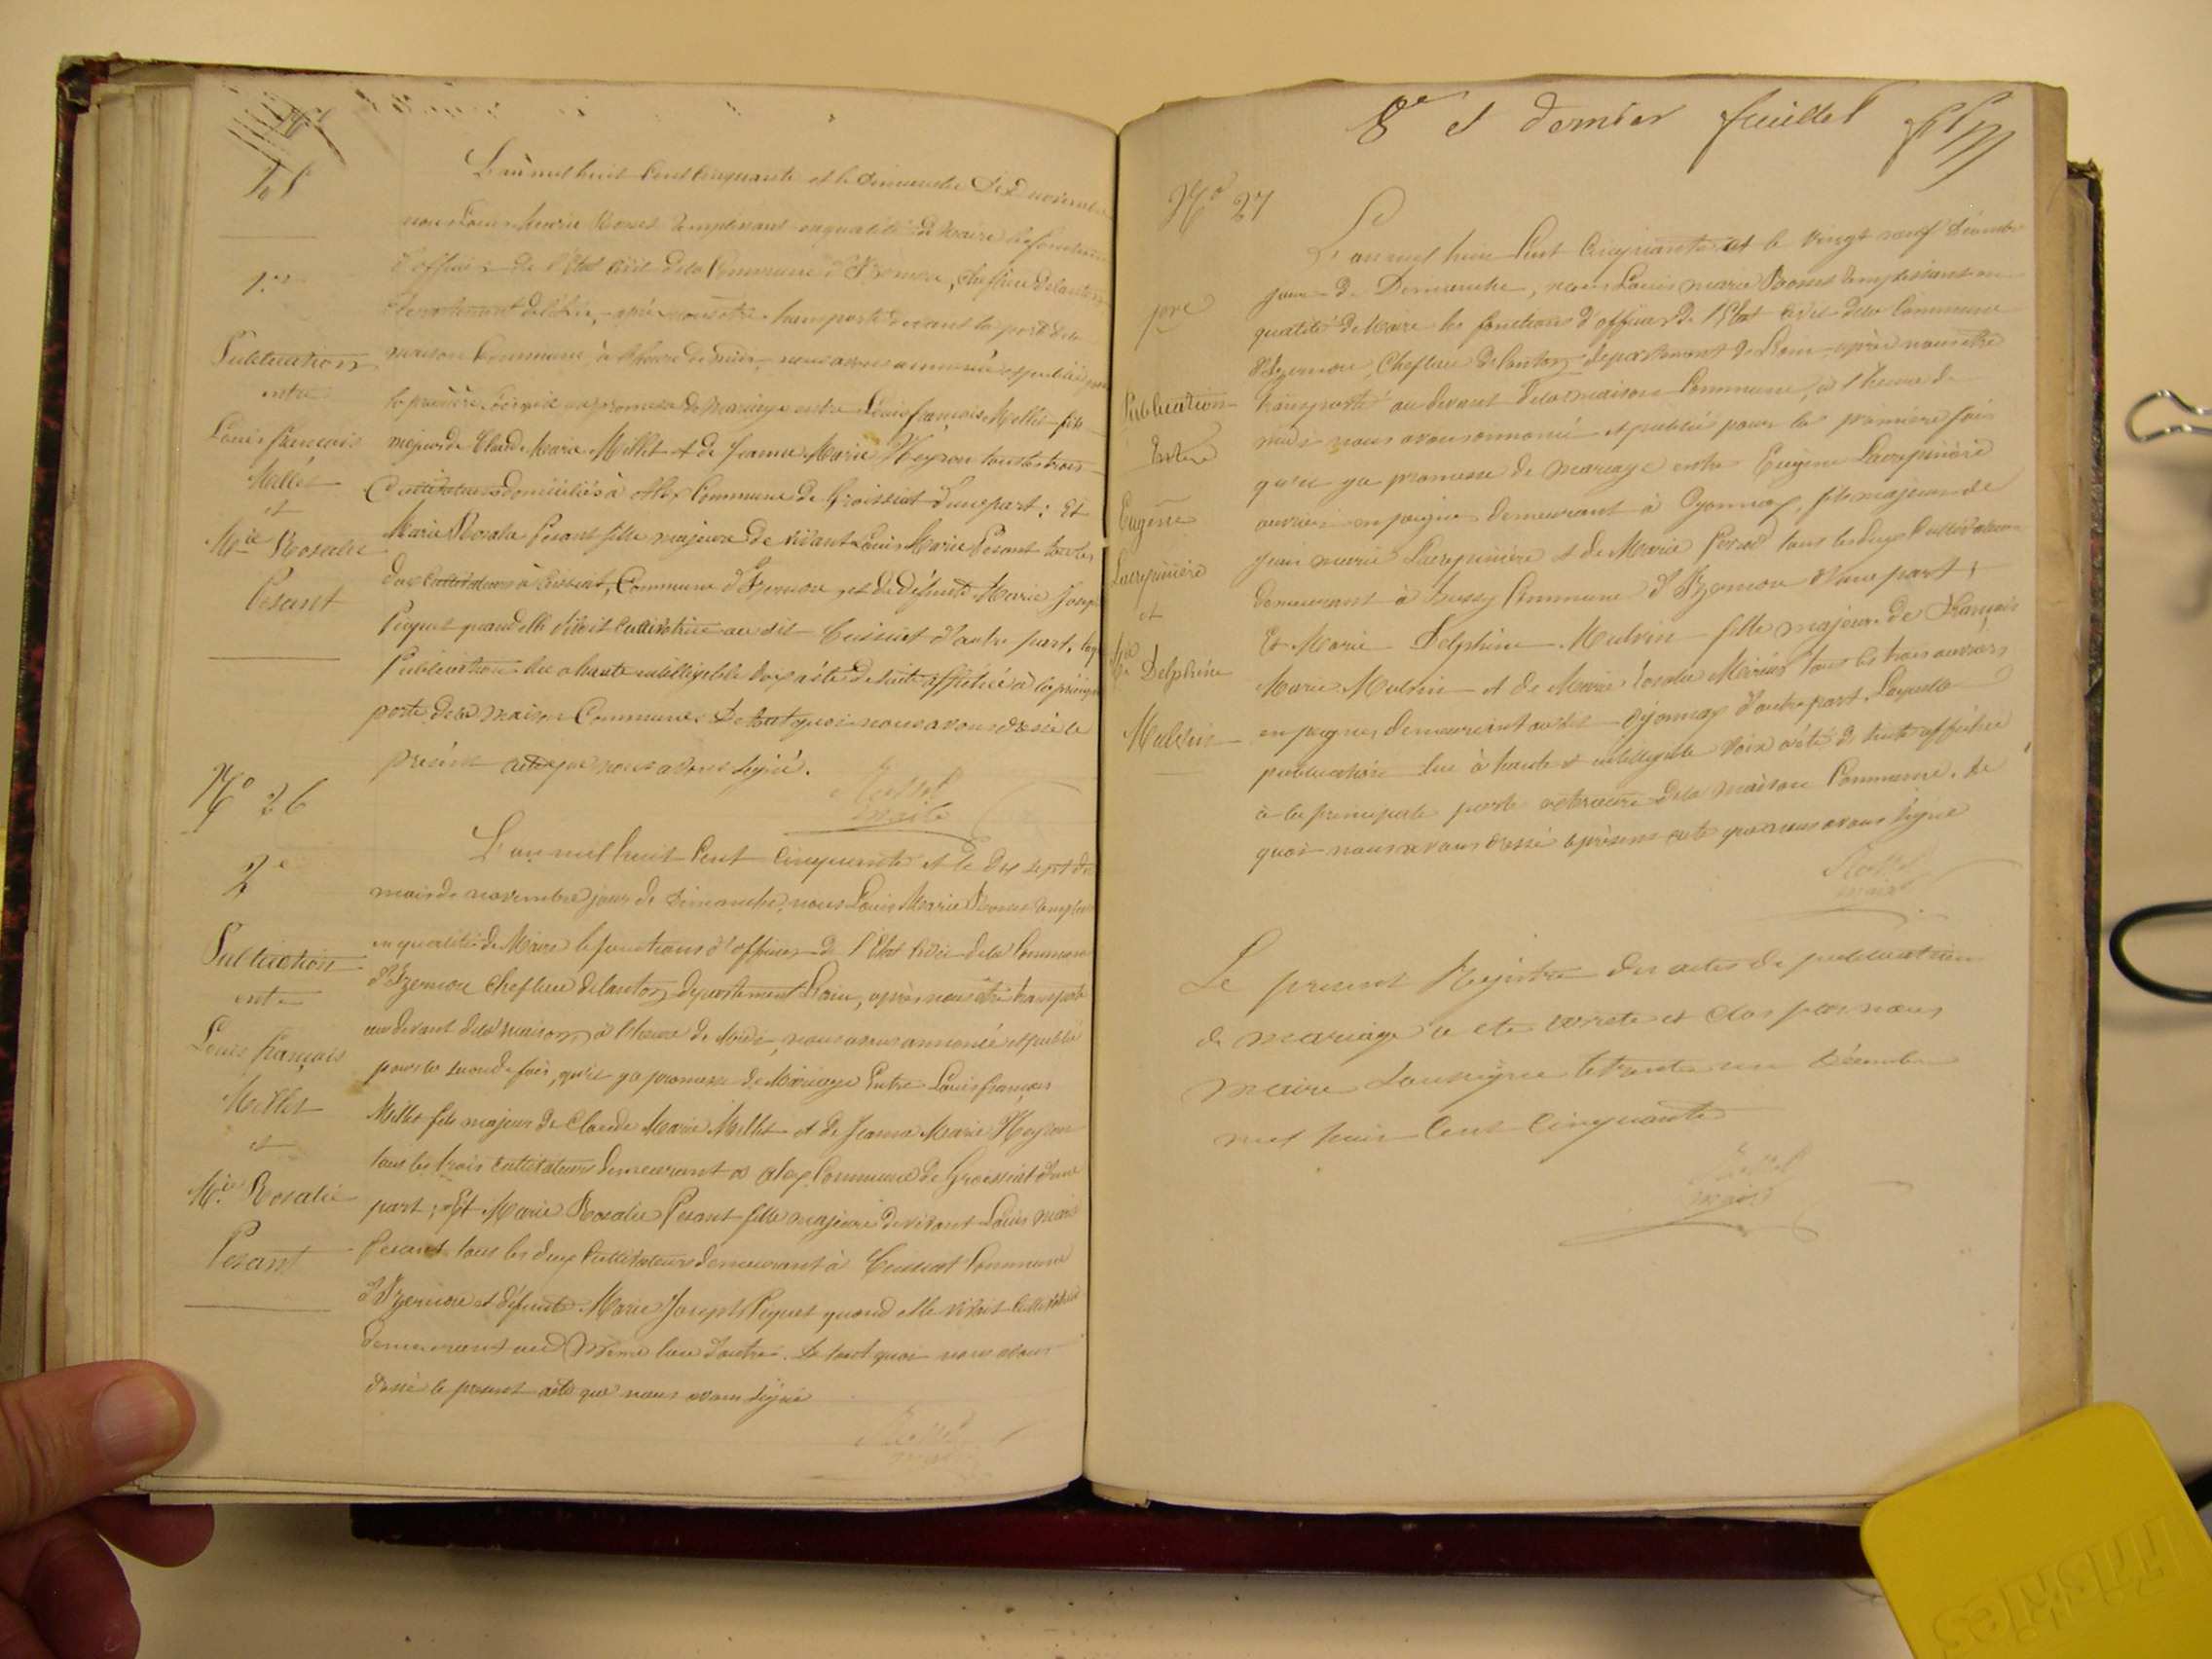 L'an mil huit cent cinquante et le dimanche dix novembre
nous Louis Marie Rosset remplissant en qualité de Maire les fonctions
d'officier de l'Etat Civil de la Commune d'Izernore, chef lieu de canton
département de l'Ain, après nous être transporté devant la porte de la
maison Commune, à l'heure de midi, nous avons annoncé et publié pour
la première fois promesse de mariage entre Louis françois Millet fils
majeur de Claude Marie Millet et de Jeanne Marie Heyron tous les trois
Cultivateurs domiciliés à Commune de Groissiat d'une part ; Et
Marie Rosalie Pesant fille majeure de vivant Louis Marie Pesant tous les
deux Cultivateurs à Ceissiat, Commune d'Izernore, et de défunte Marie Joseph
Piquet quand elle vivoit Cultivatrice au dit Ceissiat d'autre part,
Publication lue à haute et intelligible voix a été de suite affichée à la principale
porte de la maison Commune De tout quoi nous avons dressé le
présent acte que nous avons signé.
Rosset
maire
1.re
Publication
entre
Louis françois
Millet
et
M.ie Rosalie
Pesant
N° 26
2e
Publication
entre
Louis français
Millet
et
M.ie Rosalie
Pesant
L'an mil huit Cent cinquante et le dix sept du
mois de novembre jour de dimanche, nous Louis Marie Rosset
en qualité de Maire les fonctions d'officier de l'Etat Civil de la Commune
d'Izernore Chef lieu de Canton département L'ain, après nous être transporté
au devant de la maison à l'heure de Midi, nous avons annoncé et publié
pour la seconde fois, qu'il y a promesse de Mariage Entre Louis françois
Millet fils majeur de Claude Marie Millet et de Jeanne Marie Heyron
tous les trois Cultivateurs demeurant à Commune de Groissiat d'une
part ; Et Marie Rosalie Pesant fille majeure de vivant Louis Marie
Pesant tous les deux Cultivateurs demeurant à Ceissiat Commune
d'Izernore et défunte Marie Joseph Piquet quand elle vivoit Cultivatrice
demeurant au Même lieu d'autre. De tout quoi nous avons
dressé le présent acte que nous avons signé
Rosset
maire
8e et dernier feuillet
N° 27
pre
Publication
Entre
Eugène
Lacrepinière
et
Mie Delphine
Mulvin
L'an mil huit Cent Cinquante et le Vingt neuf décembre
jour de Dimanche, nous Louis marie Rosset remplissant en
qualité de Maire les fonctions d'officier de l'Etat Civil de la Commune
d'Izernore, Chef lieu de Canton département de L'ain après nous être
transporté au devant de la maison Commune, à l'heure de
midi nous avons annoncé et publié pour la première fois
qu'il y a promesse de mariage entre Eugène Lacrepinière
ouvrier en peignes demeurant à Oyonnax, fils majeur de
Jean marie Lacrepinière et de Marie tous les deux Cultivateurs
demeurant à Bussy Commune d'Izernore d'une part ;
Et Marie Delphine Mulvin fille majeure de François
Marie Mulvin et de Marie tous les trois ouvriers
en peignes demeurant au dit Oyonnax d'autre part. Laquelle
publication lue à haute et intelligible voix a été de suite affichée
à la principale porte extérieure de la maison Commune. De
quoi nous avons dressé le présent acte que nous avons signé
Rosset
maire
Le present Registre des actes de publication
de mariage a ete arrete et clos par nous
maire soussigne le trente un décembre
mil huit cent cinquante
Rosset
maire
Friskies